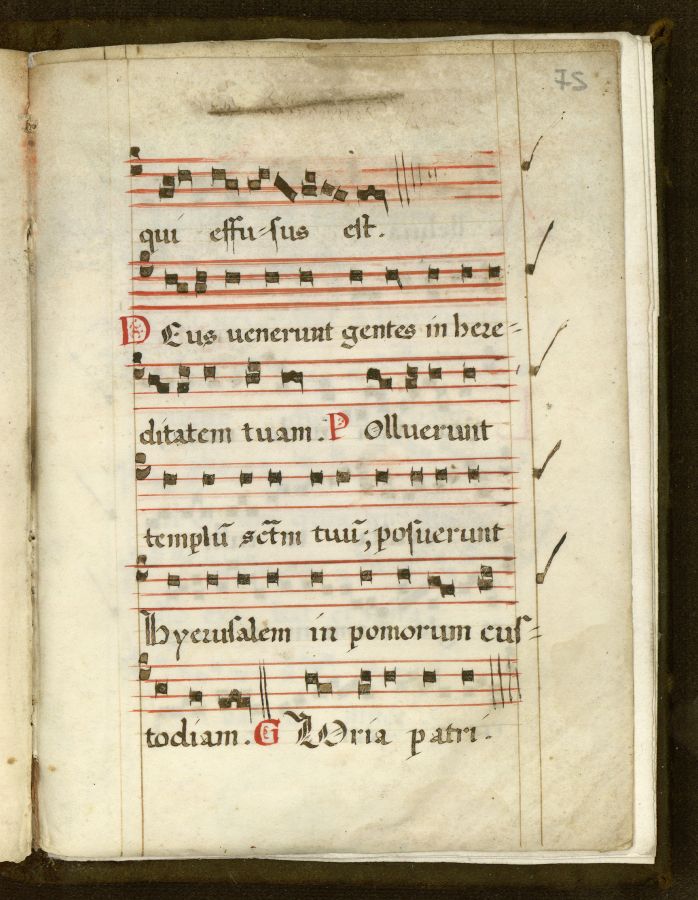 75
qui effu-sus est.
DEus venerunt gentes in here=
ditatem tuam. Polluerunt
templū sctm̄ tuū; posuerunt
hyerusalem in pomorum cus=
todiam. GLOria patri.